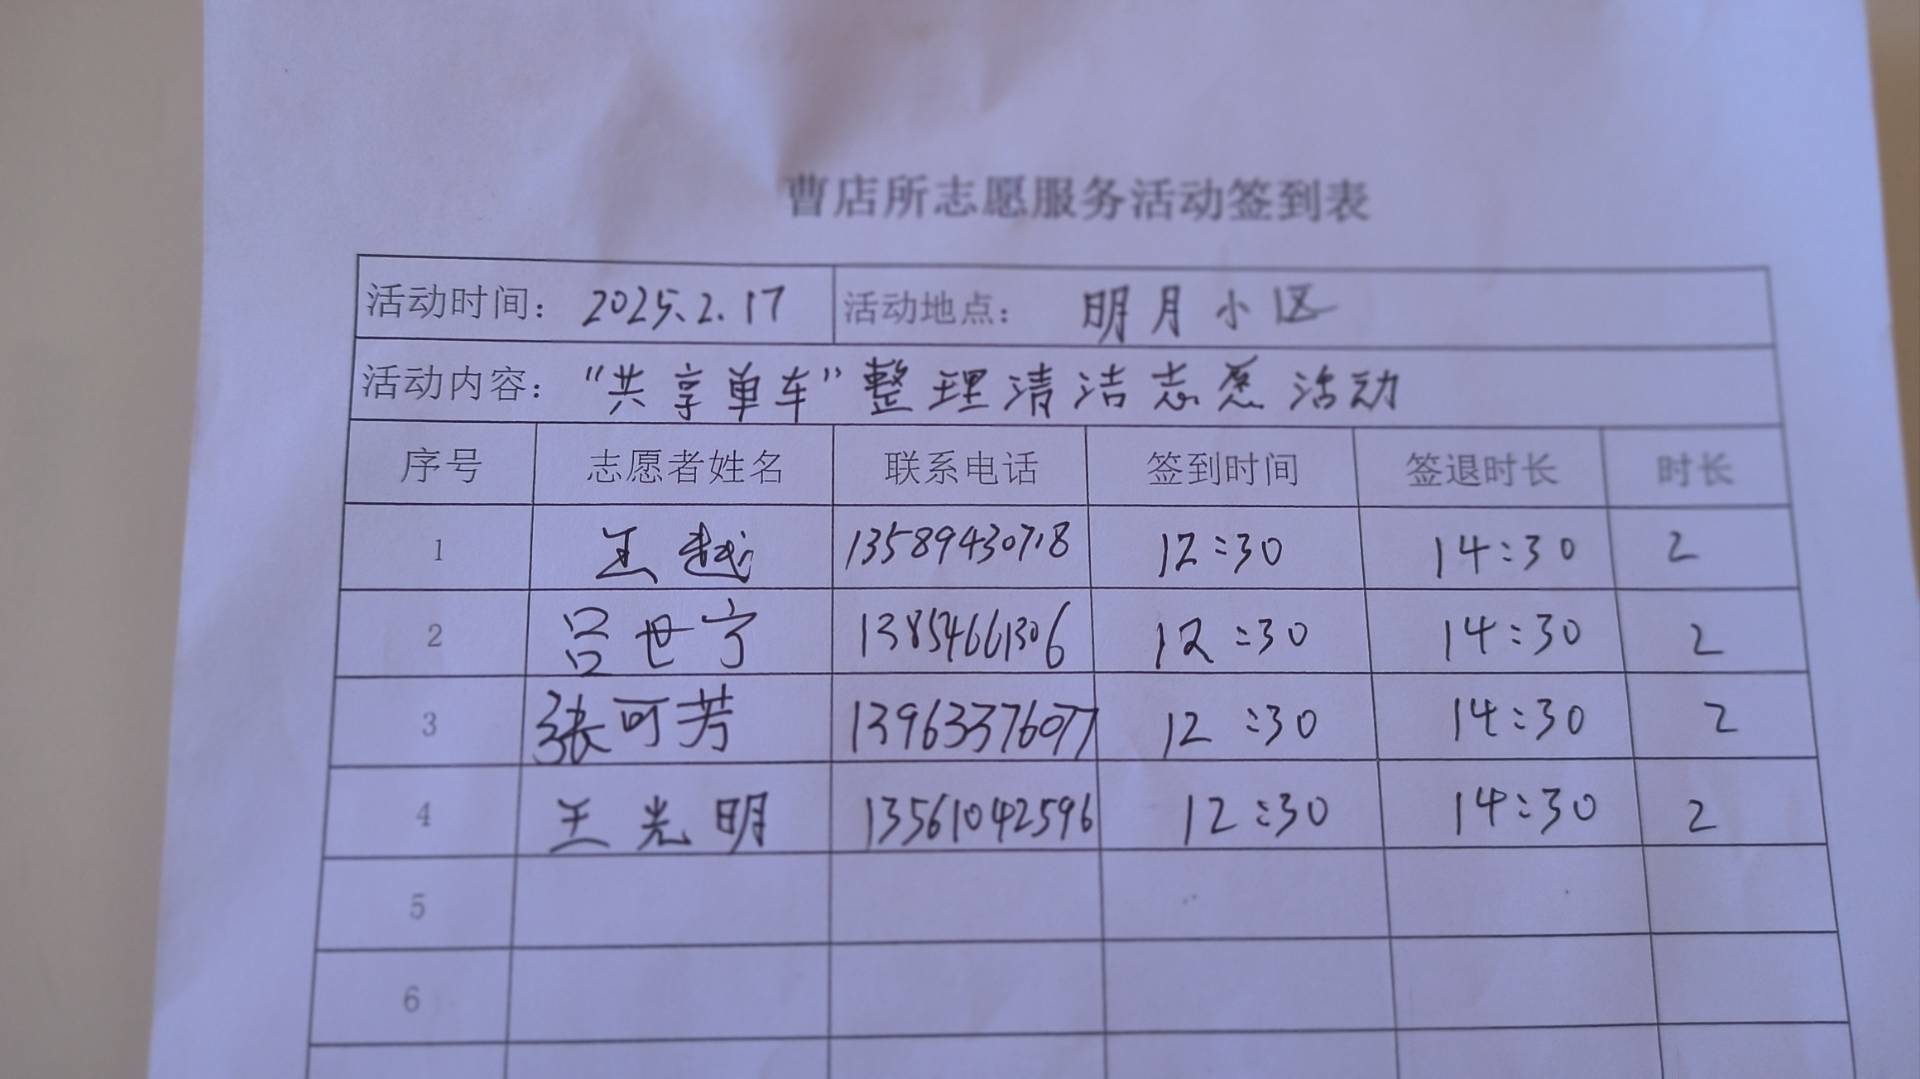 曹店所志愿服务活动签到表
活动时间: 2025.2.17 活动地点: 明月小区
活动内容: “共享单车”整理清洁志愿活动
序号 志愿者姓名 联系电话 签到时间 签退时长 时长
1 王越 13589430718 12:30 14:30 2
2 吕世宁 13854661306 12:30 14:30 2
3 张可芳 13963376077 12:30 14:30 2
4 王光明 13561042596 12:30 14:30 2
5
6